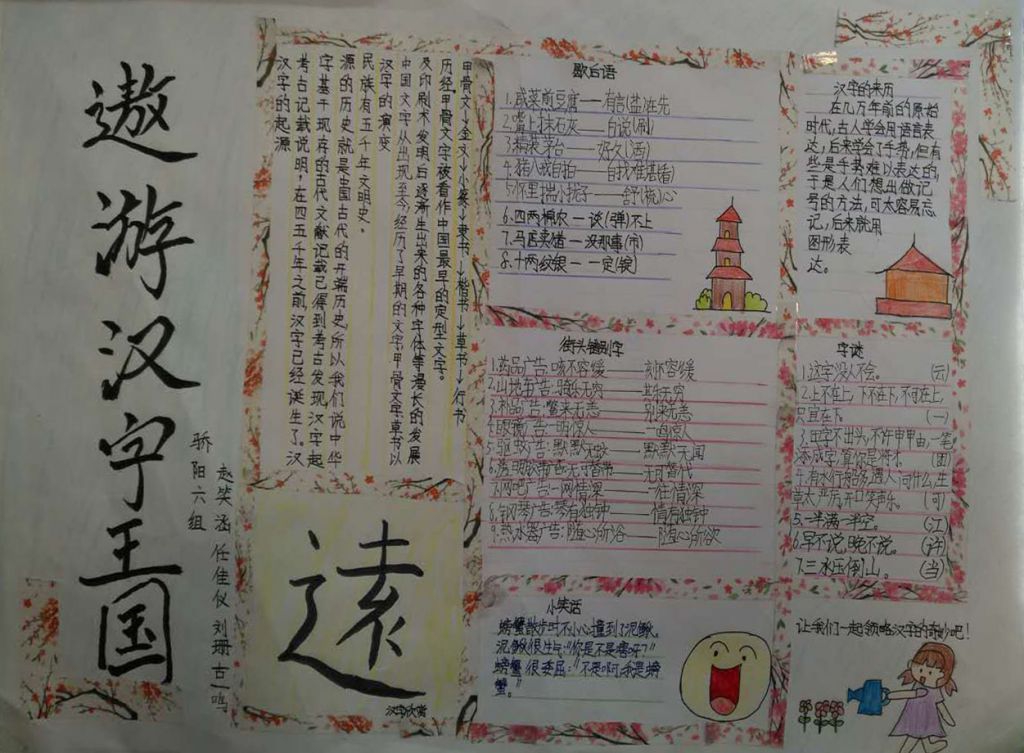 遨游汉字王国
骄阳六组
赵笑涵 任佳仪 刘珊 古一鸣
汉字的起源
考古记载说明,在四五千年之前,汉字已经诞生了。汉
字基于现存的古代文献记载已得到考古发现,汉字起
源的历史就是中国古代的开端历史,所以我们说中华
民族有五千年文明史。
汉字的演变
中国文字从出现至今,经历了早期的文字甲骨文字草书以
及印刷术发明后逐渐生出来的各种字体等漫长的发展
历经,甲骨文字被看作中国最早的定型文字。
甲骨文→金文→小篆→隶书→楷书→草书→行书
遠
汉字欣赏
歇后语
1.咸菜煎豆腐——有言(盐)在先
2.嘴上抹石灰——白说(刷)
3.箱装茅台——好久(酒)
4.猪八戒自拍——自我难堪(看)
5.怀里揣小梳子——舒(梳)心
6.四两棉花——谈(弹)不上
7.马店买猪——没那事(市)
8.十两纹银——一定(锭)
街头错别字
1.药品广告:咳不容缓——刻不容缓
2.山地车广告:骑乐无穷——其乐无穷
3.补品广告:鳖来无恙——别来无恙
4.眼镜广告:一明惊人——一鸣惊人
5.驱蚊广告:默默无蚊——默默无闻
6.透明胶带广告:无可替带——无可替代
7.网吧广告:一网情深——一往情深
8.钢琴广告:琴有独钟——情有独钟
9.热水器广告:随心所浴——随心所欲
小笑话
螃蟹散步时不小心撞到了泥鳅。
泥鳅很生气:“你是不是瞎呀?”
螃蟹很委屈:“不是啊,我是螃
蟹。”
汉字的来历
在几万年前的原始
时代,古人学会用语言表
达,后来学会了手势,但有
些是手势难以表达的,
于是人们想出做记
号的方法,可太容易忘
记,后来就用
图形表
达。
字谜
1.这字没人不会。 (云)
2.上不在上,下不在下,不可在上,
只宜在下。 (一)
3.田字不出头,不许申甲由,一笔
添成字,算你是将才。 (画)
5.一半满一半空。 (江)
6.早不说,晚不说。 (许)
7.三水压倒山。 (当)
让我们一起领略汉字的奇妙吧!